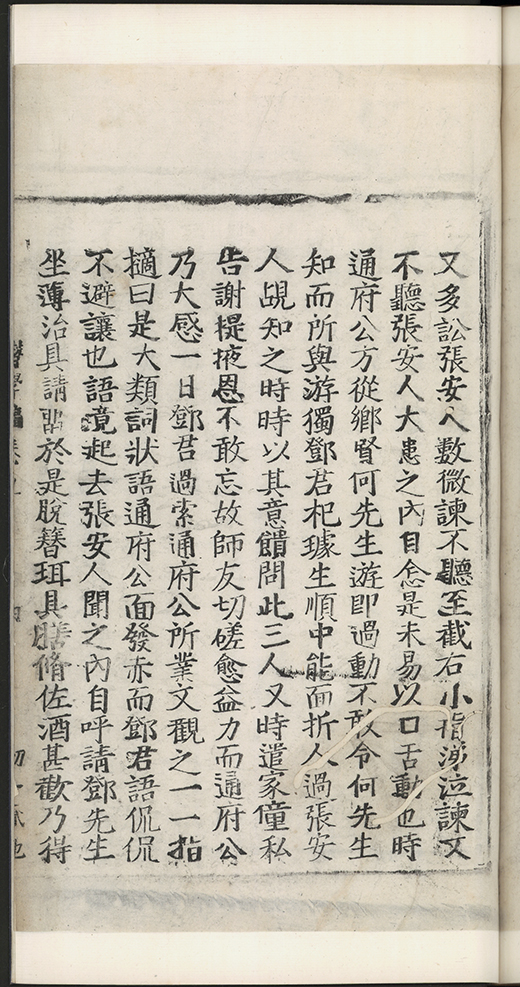 又多訟張安人數微諫不聽至截右小指涕泣諫又
不聽張安人大恚之內自念是未易以口舌動也時
通府公方從鄉賢何先生遊即過動不敢令何先生
知而所與游獨鄧君杞璩生順中能面折人過張安
人覘知之時時以其意饋問此三人又時遣家僮私
告謝提掖恩不敢忘故師友切磋愈益力而通府公
乃大感一日鄧君過索通府公所業文觀之一一指
擿曰是大類詞狀語通府公面發赤而鄧君語侃侃
不避讓也語竟起去張安人聞之內自呼請鄧先生
坐薄治具請留於是脫簪珥具膳脩佐酒甚歡乃得